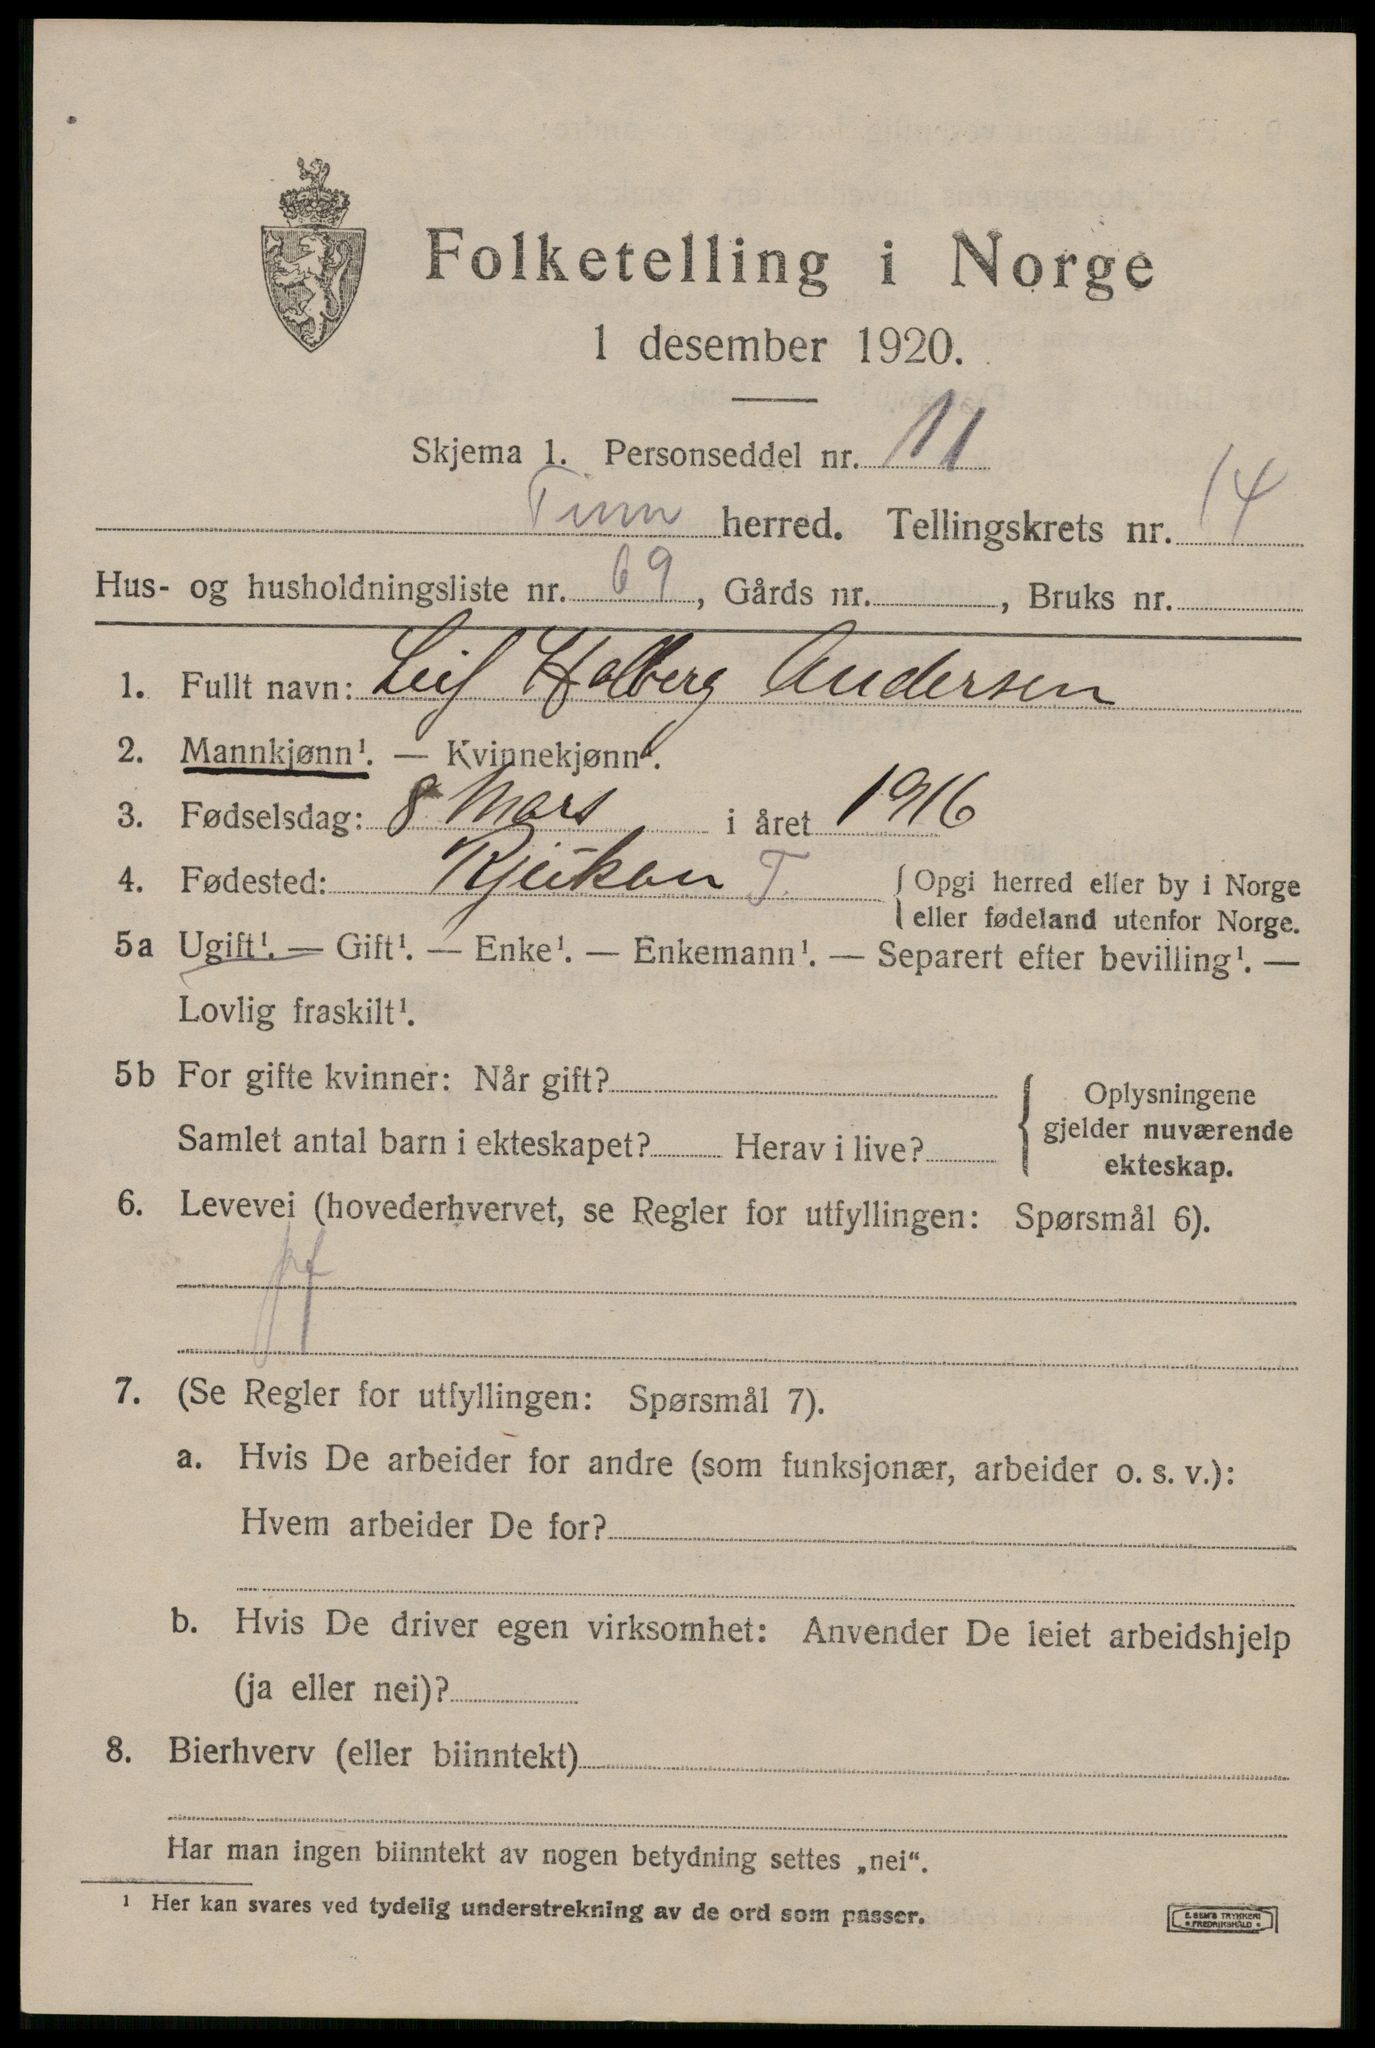 Folketelling i Norge
1 desember 1920.
Skjema 1. Personseddel nr. 11
Tinn herred. Tellingskrets nr. 14
Hus- og husholdningsliste nr. 69, Gårds nr. , Bruks nr.
1. Fullt navn: Leif Holberg Andersen
2. Mannkjønn¹. — Kvinnekjønn¹.
3. Fødselsdag: 8 Mars i året 1916
4. Fødested: Rjukan T. { Opgi herred eller by i Norge
eller fødeland utenfor Norge.
5a Ugift¹. — Gift¹. — Enke¹. — Enkemann¹. — Separert efter bevilling¹. —
Lovlig fraskilt¹.
5b For gifte kvinner: Når gift?
Samlet antal barn i ekteskapet? Herav i live?
{ Oplysningene
gjelder nuværende
ekteskap.
6. Levevei (hovederhvervet, se Regler for utfyllingen: Spørsmål 6).
7. (Se Regler for utfyllingen: Spørsmål 7).
a. Hvis De arbeider for andre (som funksjonær, arbeider o. s. v.):
Hvem arbeider De for?
b. Hvis De driver egen virksomhet: Anvender De leiet arbeidshjelp
(ja eller nei)?
8. Bierhverv (eller biinntekt)
Har man ingen biinntekt av nogen betydning settes „nei“.
¹ Her kan svares ved tydelig understrekning av de ord som passer.
E. SEM'S TRYKKERI
FREDRIKSHALD